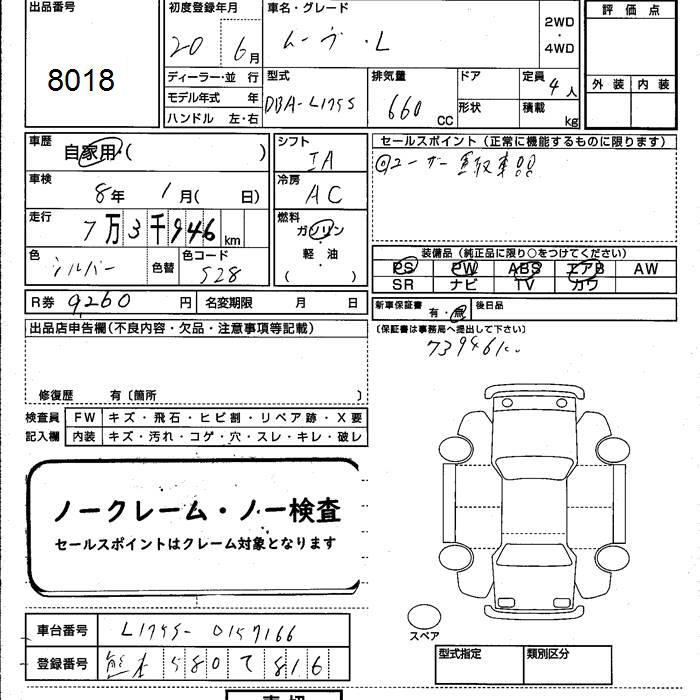 出品番号
8018
初度登録年月
20 6月
車名・グレード
ムーヴ・L
2WD
・
4WD
評価点
外装 内装
ディーラー・並行
モデル年式 年
ハンドル 左・右
型式
DBA-L175S
排気量
660 CC
ドア
形状
定員 4人
積載 kg
車歴
自家用・( )
シフト
IA
セールスポイント(正常に機能するものに限ります)
◎ユーザー買取車!!
車検
8年 1月( 日)
冷房
AC
走行
7万3千946km
燃料
ガソリン
・
軽・油
( )
色
シルバー
色替
色コード
S28
装備品(純正品に限り○をつけてください)
PS PW ABS エアB AW
SR ナビ TV カワ
R券 9260円 名変期限 月 日
新車保証書 有・無 後日品
(保証書は事務局へ提出して下さい)
73946k
出品店申告欄(不良内容・欠品・注意事項等記載)
修復歴 有〔箇所 〕
検査員 FW キズ・飛石・ヒビ割・リペア跡・X要
記入欄 内装 キズ・汚れ・コゲ・穴・スレ・キレ・破レ
ノークレーム・ノー検査
セールスポイントはクレーム対象となります
車台番号 L175S-0157166
登録番号 熊本 580 て 816
スペア
型式指定 類別区分